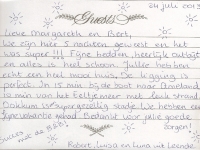 24 juli 2013
Guests
Lieve Margareth en Bert,
We zijn hier 5 nachten geweest en het
was super!!! Fijne bedden, heerlijk ontbijt
en alles is heel schoon. Jullie hebben
echt een heel mooi huis. De ligging is
perfect. In 15 min. bij de boot naar Ameland,
10 min van het Eetjemeer met leuk strand.
Dokkum is super gezellig stade. We hebben een
vakantie gehad. Bedankt voor jullie goede
zorgen!
Succes met de B&B!
Robert, Luca en Luna uit Leende